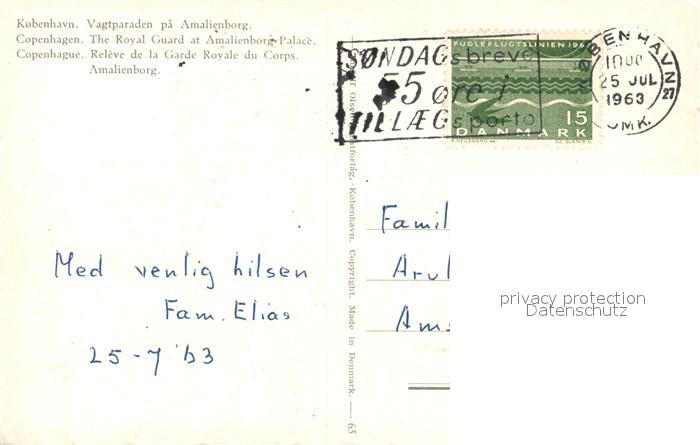 København. Vagtparaden på Amalienborg.
Copenhagen. The Royal Guard at Amalienborg Palace.
Copenhague. Relève de la Garde Royale du Corps.
Amalienborg.
SØNDAGsbreve
55 øre i
TILLÆGsporto
FUGLEFLUGTSLINIEN 1963
15
DANMARK
KØBENHAVN
25 JUL
1963
27
OMK.
Stenders Kunstforlag
Med venlig hilsen
Fam. Elias
25-7 '63
Famil
Am
privacy protection
Datenschutz
København. Copyright. Made in Denmark. — 65